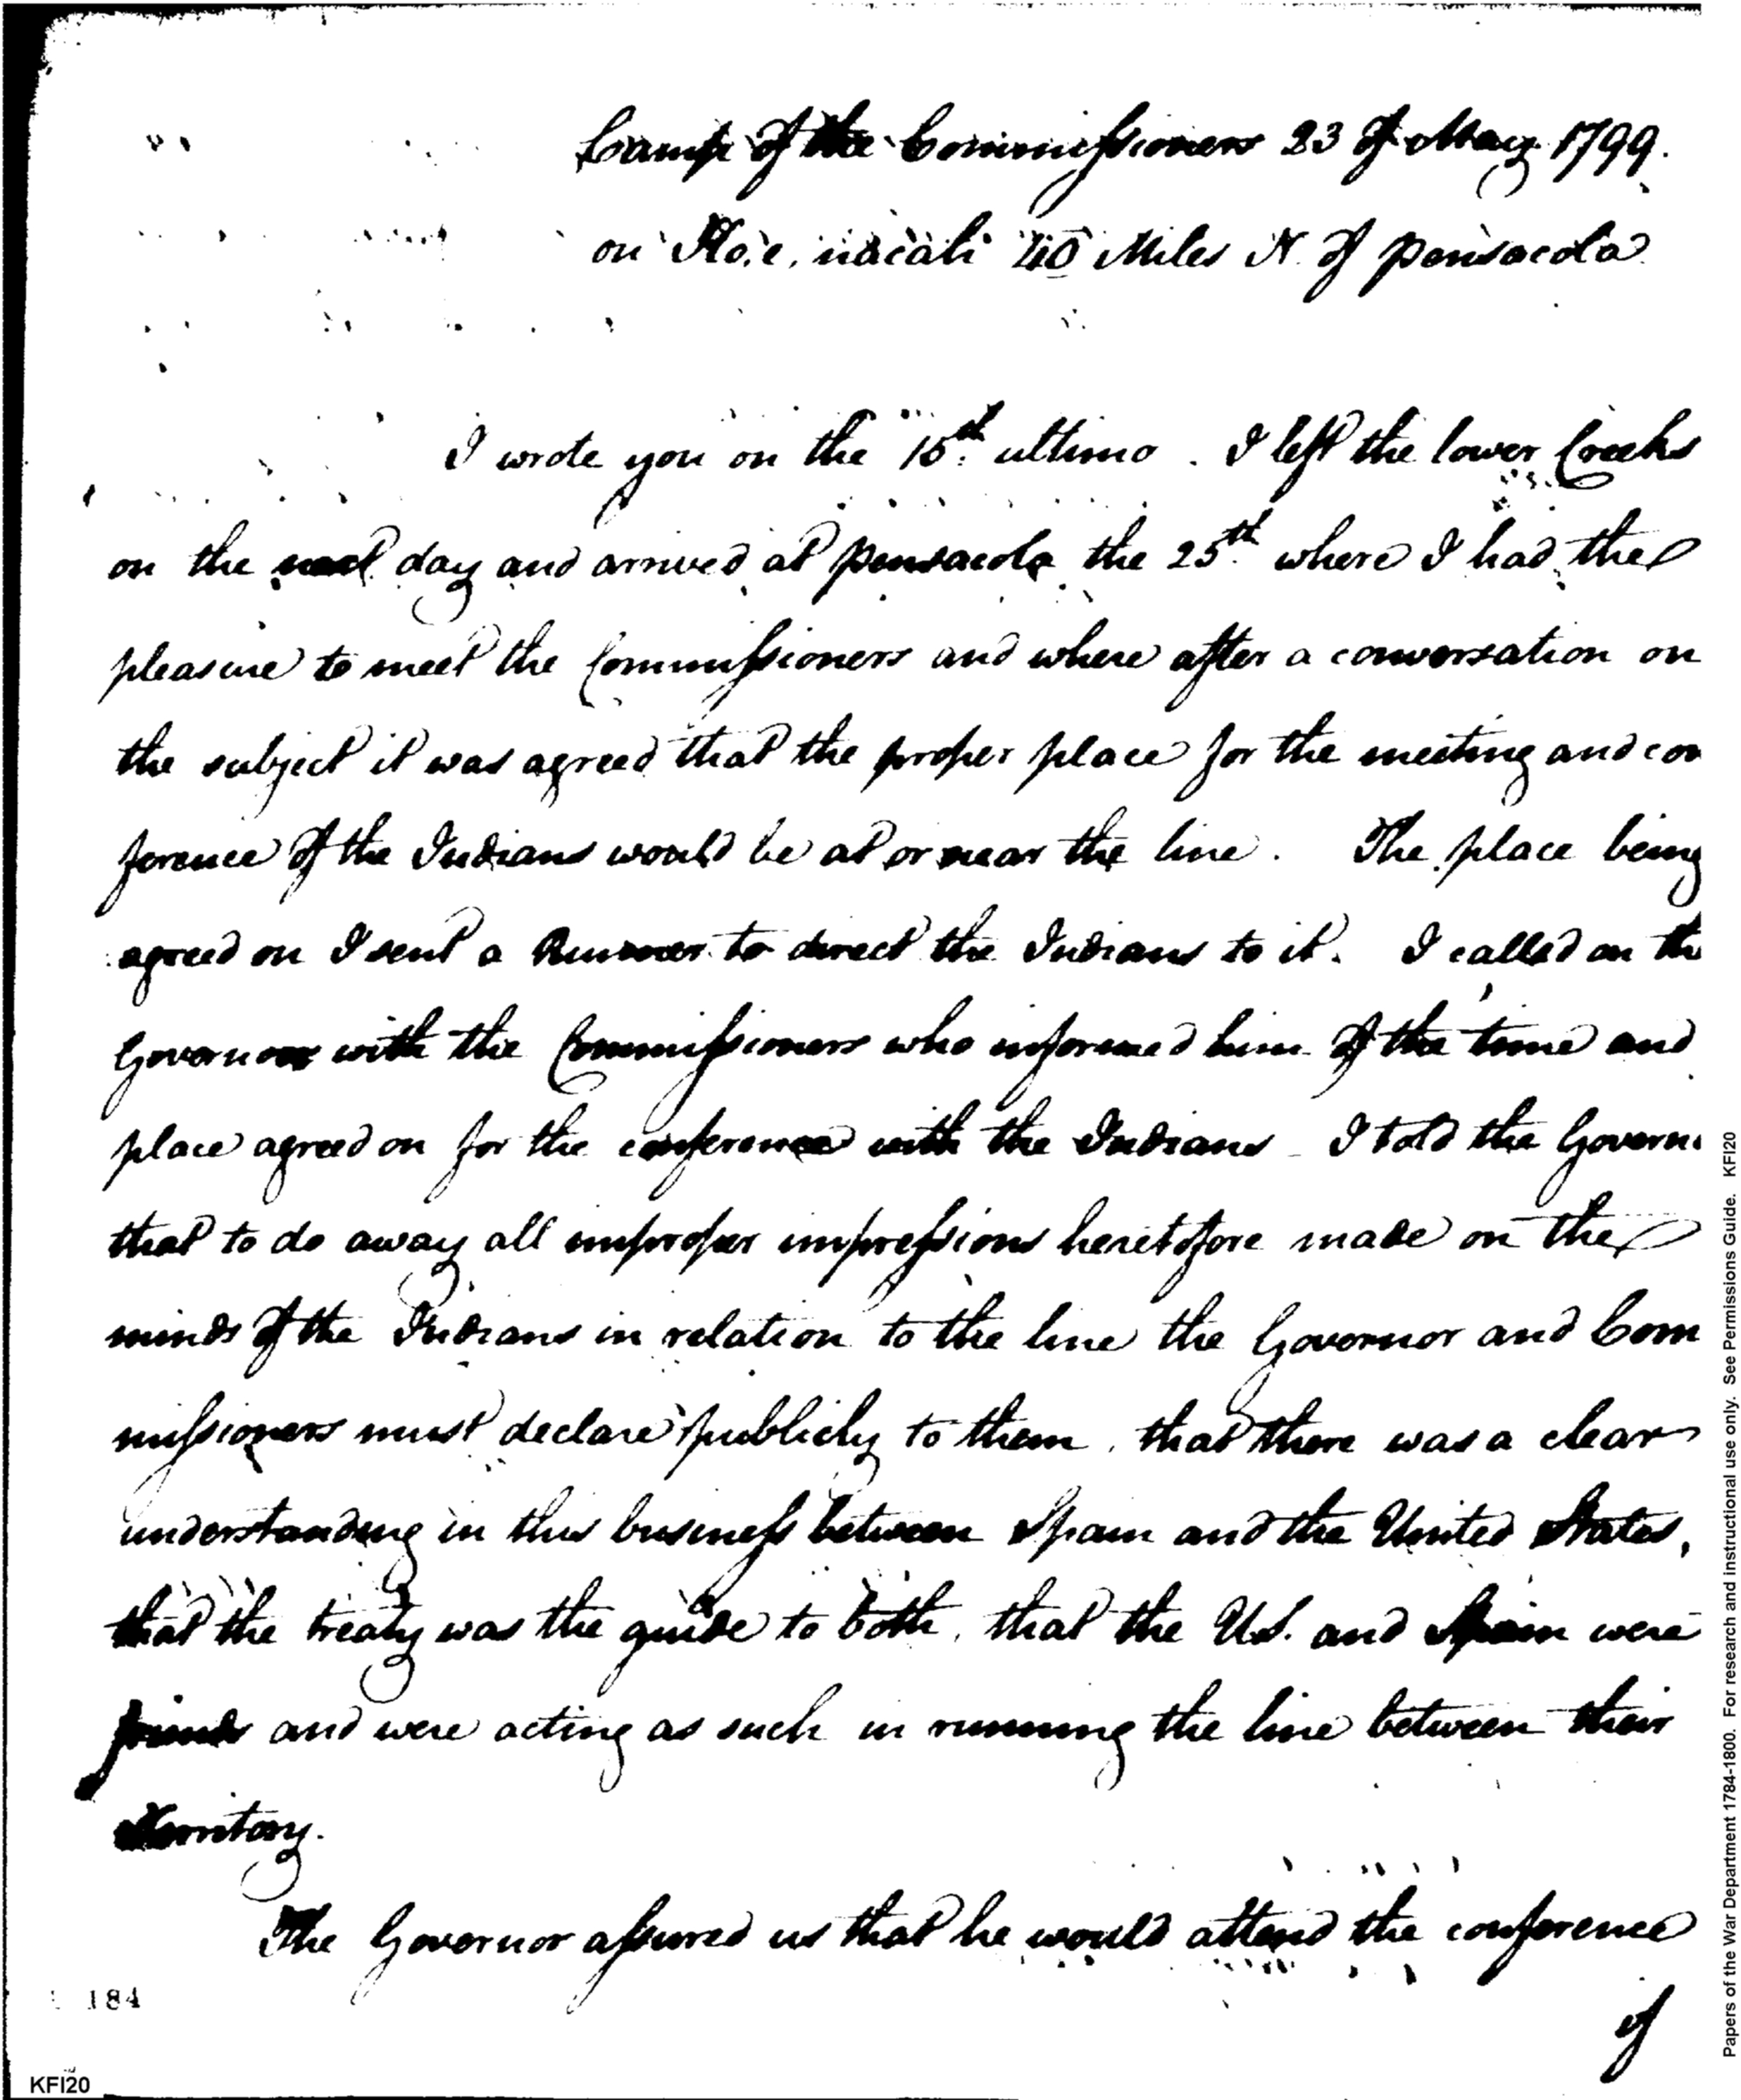 Camp of the Commissioners 23 of May 1799.
on Ko.e. nacali 40 Miles N. of pensacola
I wrote you on the 15th. ultimo. I left the lower Creeks
on the next day and arrived at pensacola the 25th. where I had the
pleasure to meet the Commissioners and where after a conversation on
the subject it was agreed that the proper place for the meeting and con
ference of the Indians would be at or near the line. The place being
agreed on I sent a Runner to direct the Indians to it. I called on the
Governor with the Commissioners who informed him of the time and
place agreed on for the conference with the Indians I told the Govern
that to do away all improper impressions heretofore made on the
minds of the Indians in relation to the line the Governor and Com
missioners must declare publicly to them, that there was a clear
understanding in this business between Spain and the United States,
that the treaty was the guide to both, that the U.S. and Spain were
friends and were acting as such in running the line between their
Territory.
The Governor assured us that he would attend the conference
if
184
KFI20
Papers of the War Department 1784-1800. For research and instructional use only. See Permissions Guide. KFI20